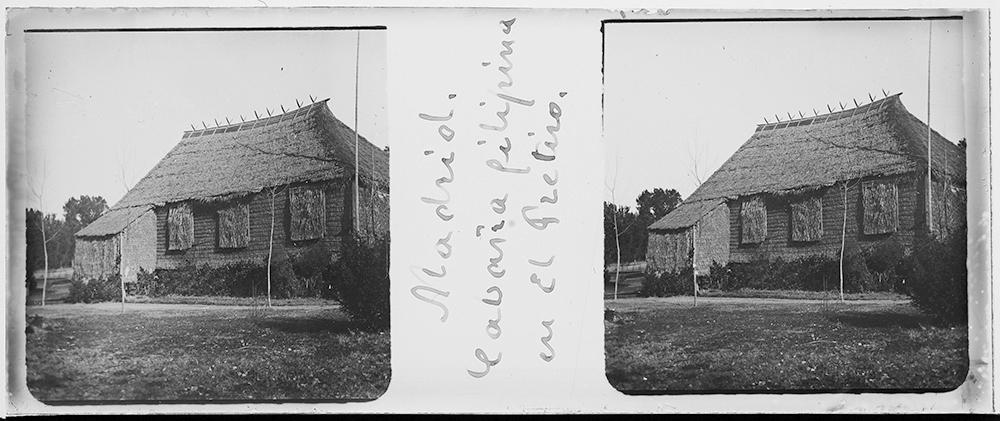 Madrid.
Cabaña filipina
en El Retiro.